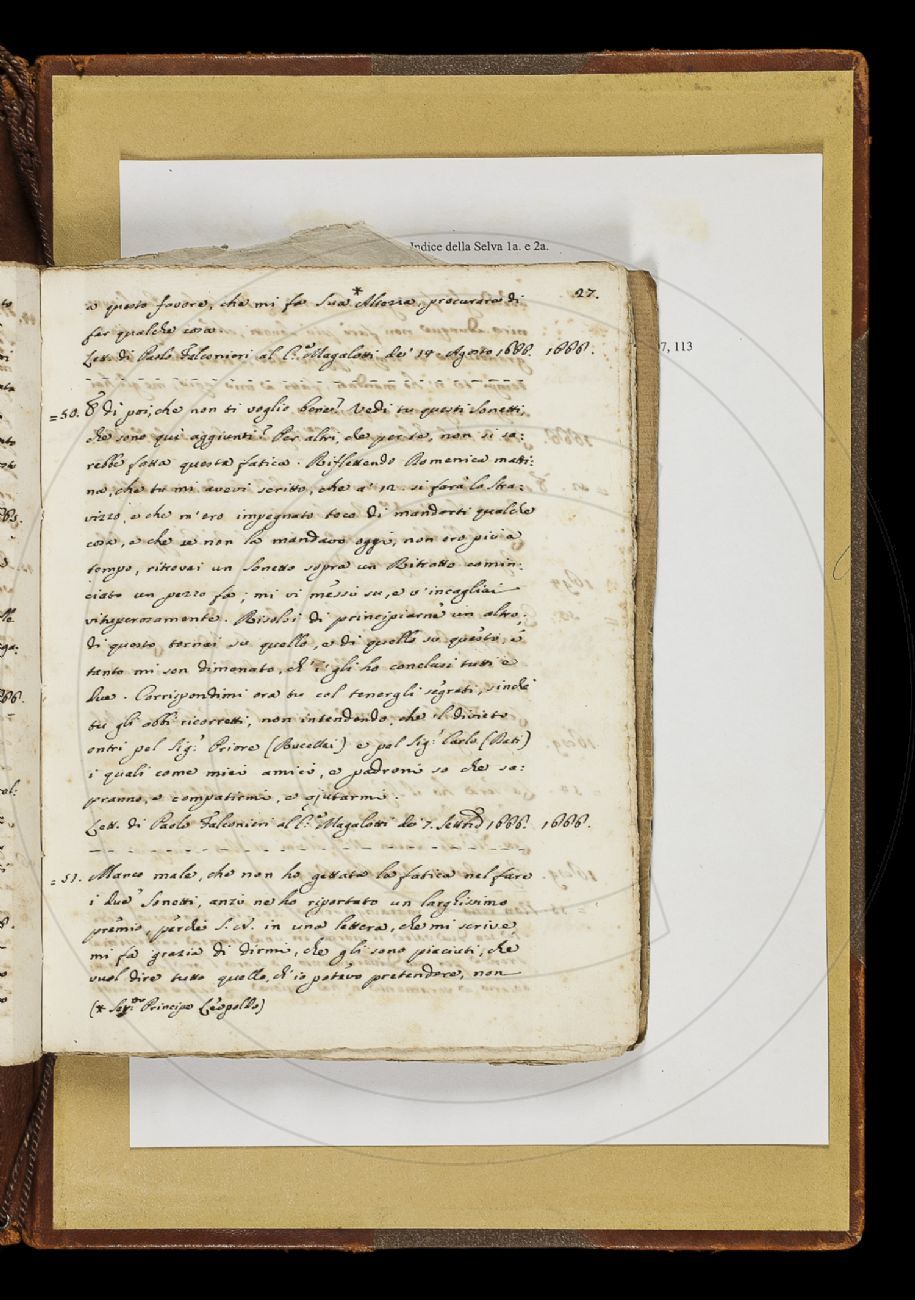 Indice della Selva 1a. e 2a.
7, 113
27.
a questo favore, che mi fa Sua * Altezza, procurare di
far qualche cosa.
Lett. di Paolo Falconieri al C.e Magalotti de' 19. Agosto 1666. 1666.
=50. E di poi, che non ti voglio bene? Vedi tu questi Sonetti,
che sono qui aggiunti? Per altri, che per te, non si sa:
rebbe fatta questa fatica. Riflettendo Domenica matti:
na, che tu mi avevi scritto, che a' 12. si farà lo Stra:
vizzo, e che m'ero impegnato teco di mandarti qualche
cosa, e che se non la mandavo oggi, non ero più a
tempo, ritrovai un Sonetto sopra un Ritratto comin:
ciato un pezzo fa; mi vi messi su, e v'incagliai
vituperosamente. Risolsi di principiarne un altro,
di questo tornai su quello, e di quello su questo, e
tanto mi son dimenato, ch'i' gli ho conclusi tutti e
due. Corrispondimi ora tu col tenergli segreti, sinchè
tu gli abbi ricorretti, non intendendo, che il divieto
entri pel Sig.r Priore (Rucellai) e pel Sig.r Carlo (Dati)
i quali come miei amici, e padroni so che sa:
pranno, e compatirmi, e ajutarmi.
Lett. di Paolo Falconieri al C.e Magalotti de' 7. Settre 1666. 1666.
=51. Manco male, che non ho gettata la fatica nel fare
i due Sonetti, anzi ne ho riportato un larghissimo
premio, perchè S. A. in una lettera, che mi scrive
mi fa grazia di dirmi, che gli sono piaciuti, che
vuol dire tutto quello, ch'io potevo pretendere, non
(* Ser.mo Principe Leopoldo)